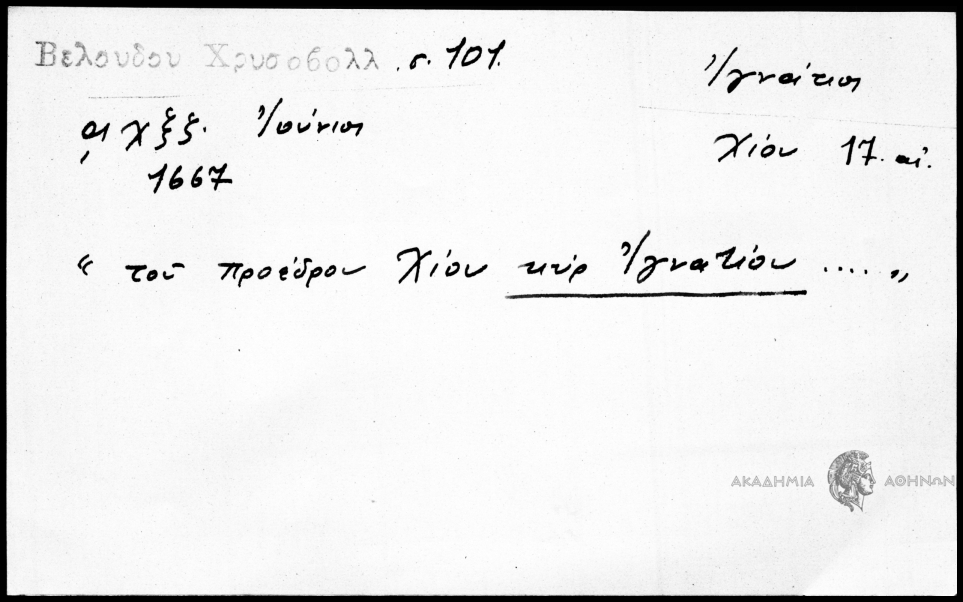 Βελουδου Χρυσοβολλ. σ. 101.
Ἰγνάτιος
͵αχξζ. Ἰούνιος
Χίου 17. αἰ.
1667
“ τοῦ προέδρου Χίου κυρ Ἰγνατίου .... „
ΑΚΑΔΗΜΙΑ ΑΘΗΝΩΝ